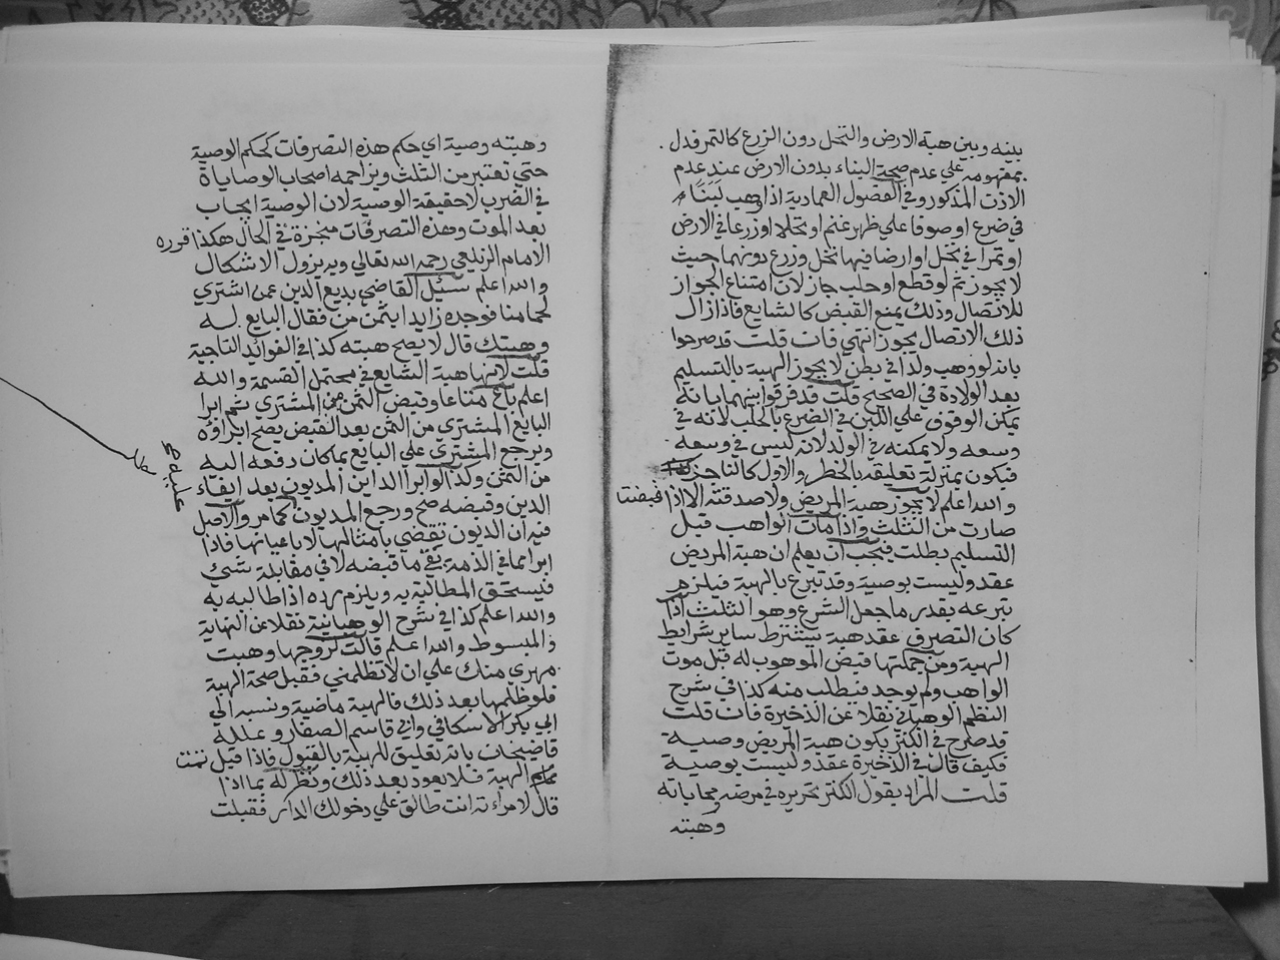 بينه وبين هبة الارض والنخل دون الزرع كالتمر فدل
بمفهومه علي عدم صحة البناء بدون الارض عند عدم
الاذن المذكور وفي الفصول العمادية اذا وهب لبنا
في ضرع او صوفا علي ظهر غنم او نخلا او زرعا في الارض
او تمرا في نخل او ارضا فيها نخل وزرع دونهما حيث
لا يجوز ثم لو قطع او حلب جاز لان امتناع الجواز
للاتصال وذلك يمنع القبض كالشايع فاذا زال
ذلك الاتصال يجوز انتهي فان قلت قد صرحوا
بانه لو وهب ولدا في بطن لا يجوز الهبة بالتسليم
بعد الولادة في الصحيح قلت قد فرقوا بينهما بانه
يمكن الوقوف علي اللبن في الضرع بالحلب لانه في
وسعه ولا يمكنه في الولد لانه ليس في وسعه
فيكون بمنزلة تعليقه بالخطر والاول كالناجز
والله اعلم لا يجوز هبة المريض ولا صدقته الا اذا قبضتا
صارت من الثلث واذا مات الواهب قبل
التسليم بطلت فيجب ان يعلم ان هبة المريض
عقد وليست بوصية وقد تبرع بالهبة فيلزم
تبرعه بقدر ما جعل الشرع وهو الثلث اذا
كان التصرف عقد هبة يشترط ساير شرايط
الهبة ومن جملتها قبض الموهوب له قبل موت
الواهب ولم يوجد فيطلب منه كذا في شرح
النظم الوهبني نقلا عن الذخيرة فان قلت
قد صرح في الكنز بكون هبة المريض وصية
فكيف قال في الذخيرة عقد وليست بوصية
قلت المراد بقول الكنز تحريره في مرضه ومحاباته
وهبته
وهبته وصية اي حكم هذه التصرفات كحكم الوصية
حتي تعتبر من الثلث ويزاحمه اصحاب الوصايا
في الضرب لا حقيقة الوصية لان الوصية ايجاب
بعد الموت وهذه التصرفات منجزة في الحال هكذا قرره
الامام الزيلعي رحمه الله تعالي وبه يزول الاشكال
والله اعلم سئل القاضي بديع الدين عمن اشتري
لحما منا فوجده زايدا بثمن من فقال البايع له
وهبتك قال لا يصح هبته كذا في الفوائد التاجية
قلت لانها هبة الشايع في محتمل القسمة والله
اعلم باع متاعا وقبض الثمن من المشتري ثم ابرا
البايع المشتري من الثمن بعد القبض يصح ابراؤه
ويرجع المشتري علي البايع بما كان دفعه اليه
من الثمن وكذا لو ابرا الداين المديون بعد ايفاء
الدين وقبضه صح ورجع المديون كما مر والاصل
فيه ان الديون تقضي بامثالها لا باعيانها فاذا
ابرا عما في الذمة بقي ما قبضه لا في مقابلة شئ
فيستحق المطالبة به ويلزم رده اذا طالبه به
والله اعلم كذا في شرح الوهبانية نقلا عن النهاية
والمبسوط والله اعلم قالت لزوجها وهبت
مهري منك علي ان لا تظلمني فقبل صحة الهبة
فلو ظلمها بعد ذلك فالهبة ماضية ونسبه الي
ابي بكر الاسكافي وابي قاسم الصفار وعلله
قاضيخان بانه تعليق للهبة بالقبول فاذا قبل تمت
الهبة فلا يعود بعد ذلك ونظر له بما اذا
قال لامراءته انت طالق علي دخولك الدار فقبلت